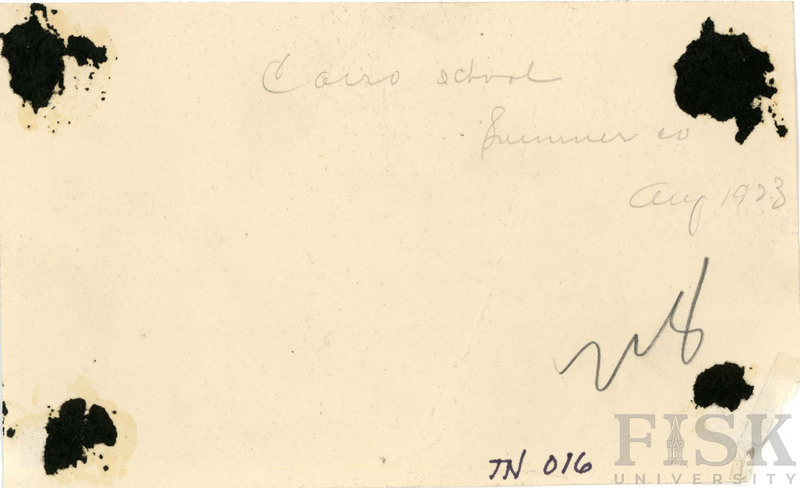 Cairo school
Sumner co
Aug 1923
TN 016
FISK
UNIVERSITY